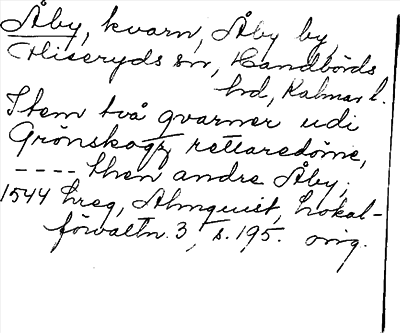 Åby, kvarn, Åby by,
Hliseryds sn, Handbörds
hd, Kalmar l.
Item två qvarner udi
Grönskogz rettaredöme,
---- then andre Åby;
1544 hreg, Almquist, Lokal-
förvaltn. 3, s. 195. orig.